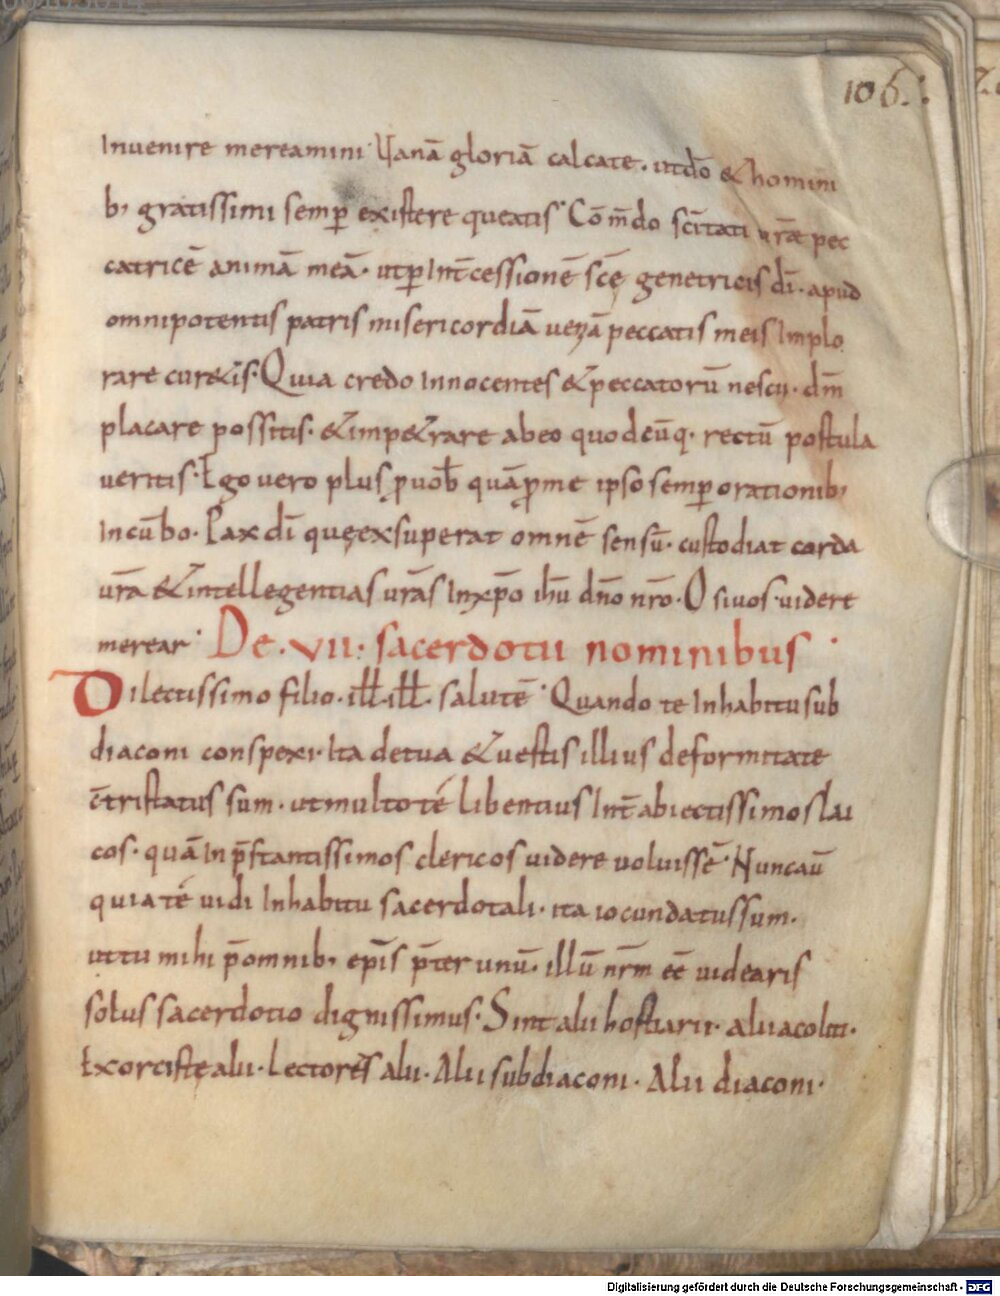 106.
Inuenire mereamini. Uanā gloriā calcate. utdō & homini
b; gratissimi semp̄ existere queatis. Cōm̄do sc̄itati ur̄ae pec
catricē animā meā. utp̱ Int̄cessionē sc̄ę genetricis dī. apud
omnipotentis patris misericordiā ueniā peccatis meis Implo
rare cur&is. Quia credo Innocentes & peccatorū nescii. dm̄
placare possitis. & imp&rare abeo quodcūq. rectū postula
ueritis. Ego uero plus ꝓ uob̄ quā ꝓ me ipso semp̱ orationib;
Incūbo. Pax dī quę exsuperat omnē sensū. custodiat corda
ur̄a & intellegentias ur̄as In xp̄o ihū dn̄o nr̄o. O si uos uidere
merear. De. VII. sacerdotii nominibus.
Dilectissimo filio. ill̄. ill̄. salutē. Quando te Inhabitu sub
diaconi conspexi. Ita de tua & uestis illius deformitate
c̄tristatus sum. ut multo té libentius Int̄ abiectissimos lai
cos. quā In p̄stantissimos clericos uidere uoluissē. Nunc aū
quia té uidi Inhabitu sacerdotali. ita iocundatus sum.
ut tu mihi p̄ omnib; ep̄is p̄ter unū. illū nr̄m eē uidearis
solus sacerdotio dignissimus. Sint alii hostiarii. alii acoliti.
Exorcistę alii. Lectores alii. Alii subdiaconi. Alii diaconi.
Digitalisierung gefördert durch die Deutsche Forschungsgemeinschaft - DFG